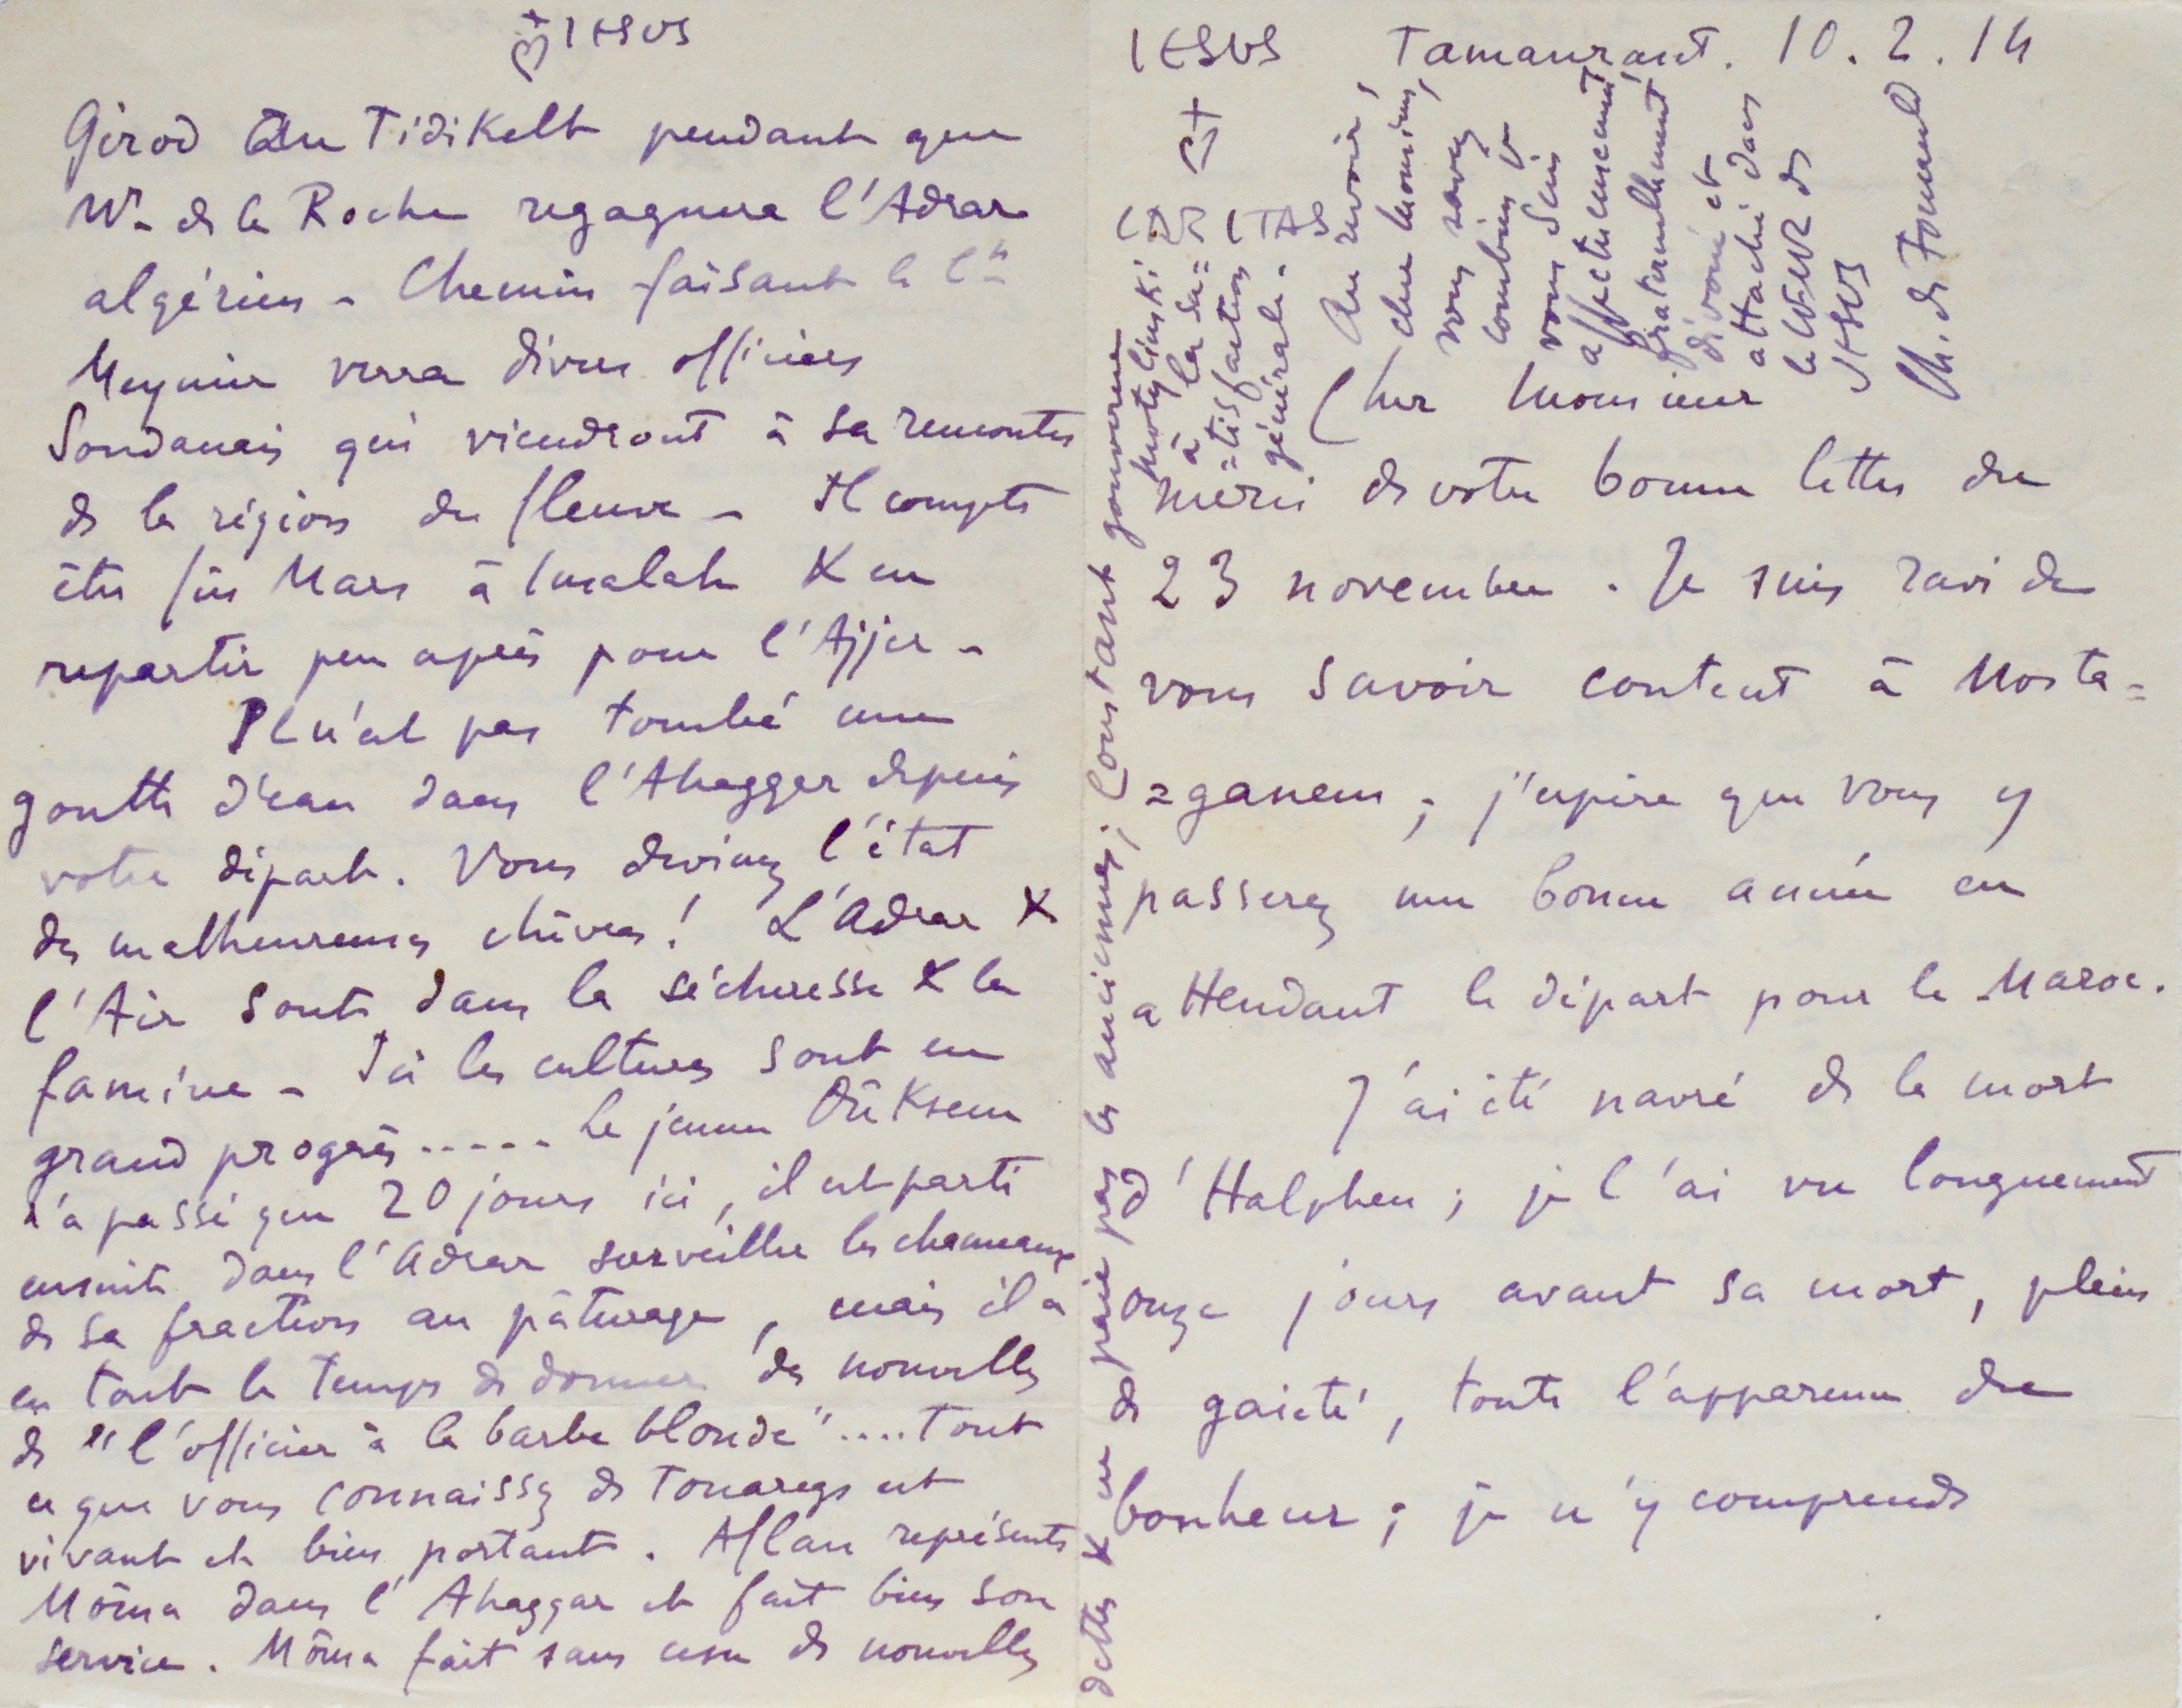 IESUS Tamanrasset. 10.2.14
CARITAS
Cher Monsieur
merci de votre bonne lettre du
23 november. Je suis ravi de
vous savoir content à Mosta=
=ganem ; j'espère que vous y
passerez une bonne année en
attendant le départ pour le Maroc.
J'ai été navré de la mort
d'Halphen ; je l'ai vu longuement
onze jours avant sa mort, plein
de gaieté, toute l'apparence du
bonheur ; je n'y comprends
IESUS
Girod au Tidikelt pendant que
de la Roche regagnera l'Adrar
algérien - Chemin faisant le Cel
Meynier verra divers officiers
Soudanais qui viendront à sa rencontre
de la région du fleuve - Il compte
être fin Mars à Insalah & en
repartir peu après pour l'Ajjer -
Il n'est pas tombé une
goutte d'eau dans l'Ahaggar depuis
votre départ. Vous devinez l'état
des malheureuses chèvres ! L'Adrar &
l'Aïr sont dans la sécheresse & la
famine - Ici les cultures sont en
grand progrès..... Le jeune Ouksem
n'a passé que 20 jours ici, il est parti
ensuite dans l'Adrar surveiller les chameaux
de sa fraction au pâturage, mais il a
eu tout le temps de donner des nouvelles
de "l'officier à la barbe blonde".... Tout
ce que vous connaissez de Touaregs est
vivant et bien portant. Aflan représente
Mousa dans l'Ahaggar et fait bien son
service. Mousa fait sans cesse de nouvelles
dettes & ne paie pas les anciennes ; Constant gouverne
Motylinski
à la sa=
=tisfaction
générale.
Au revoir,
cher Monsieur,
vous savez
combien je
vous suis
affectueusement
fraternellement
dévoué et
attaché dans
le COEUR de
JESUS
Ch. de Foucauld